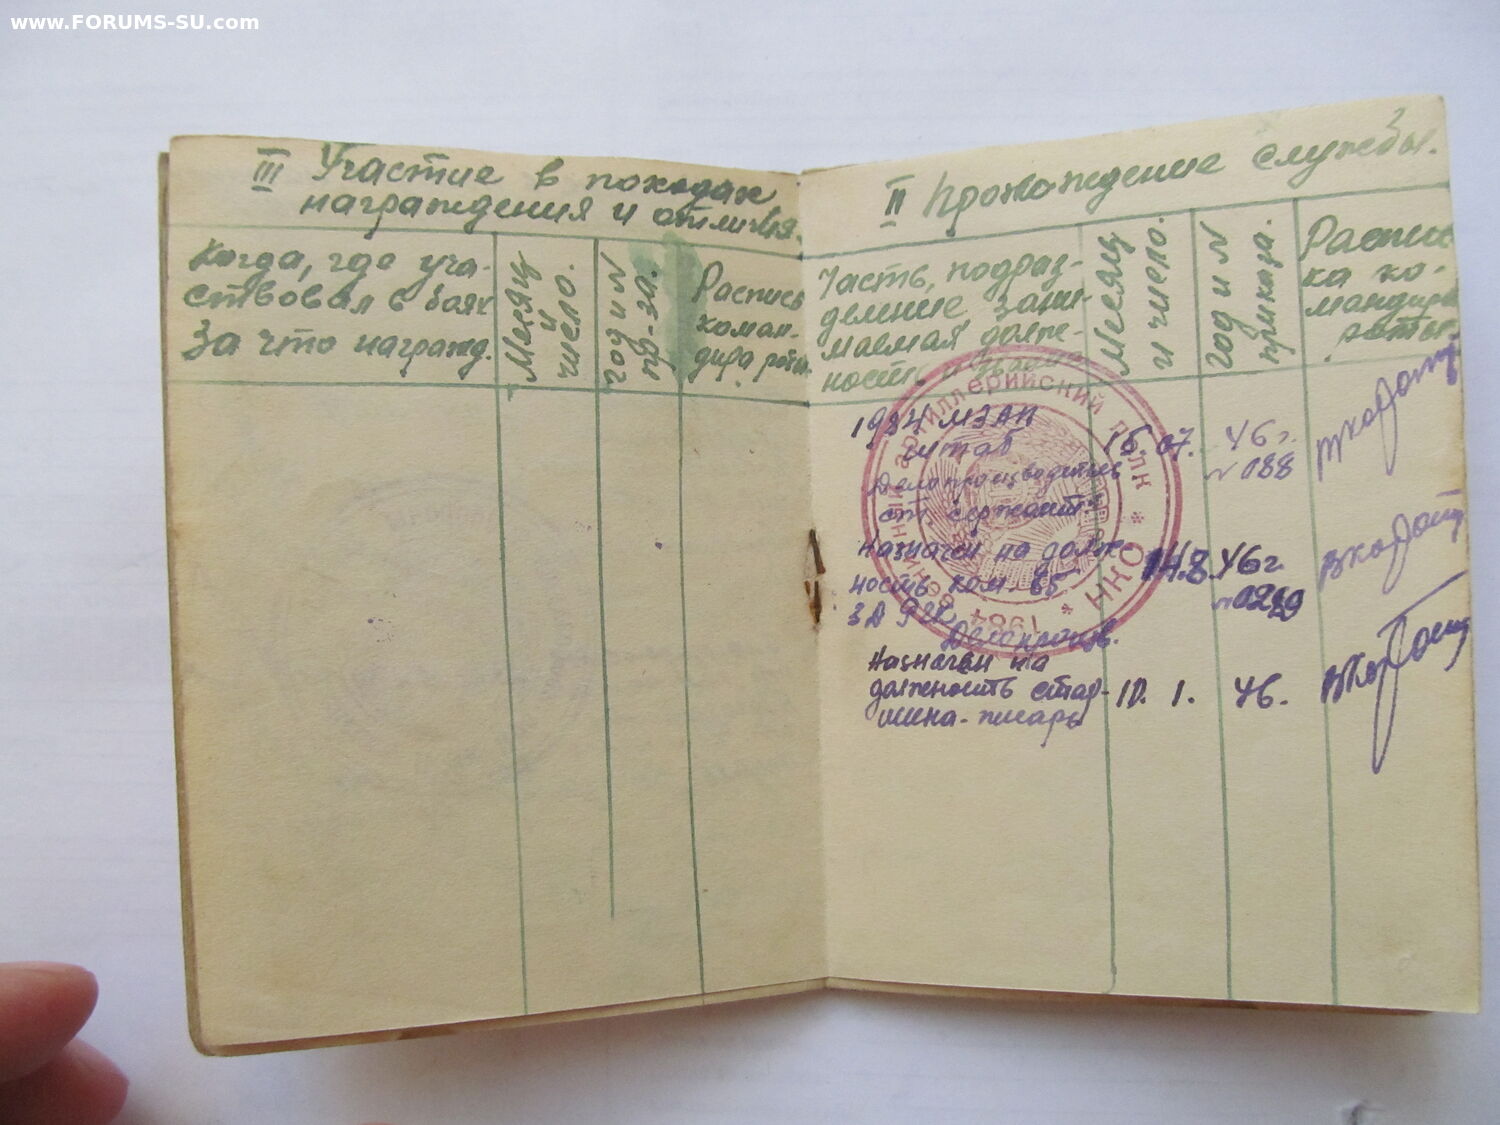 www.FORUMS-SU.com
III Участие в походах
награждения и отличия.
Когда, где уча-
ствовал в боях
За что награжд.
Месяц
и
число.
год и N
пр-за.
Распись
коман-
дира роты.
II Прохождение службы.
Часть, подраз-
деление зани-
маемая долж-
ность и звание
Месяц
и число.
год и N
приказа.
Распис
ка ко-
мандира
роты.
1984 МЗАП
штаб
Делопроизводитель
ст. сержант
15.07.
46г.
N 088
Назначен на долж-
ность ком.
Делопроизв.
14.8.
46г.
Назначен на
должность стар-
шина-писарь
10. 1.
46.
артиллерийский полк * НКО * 1984